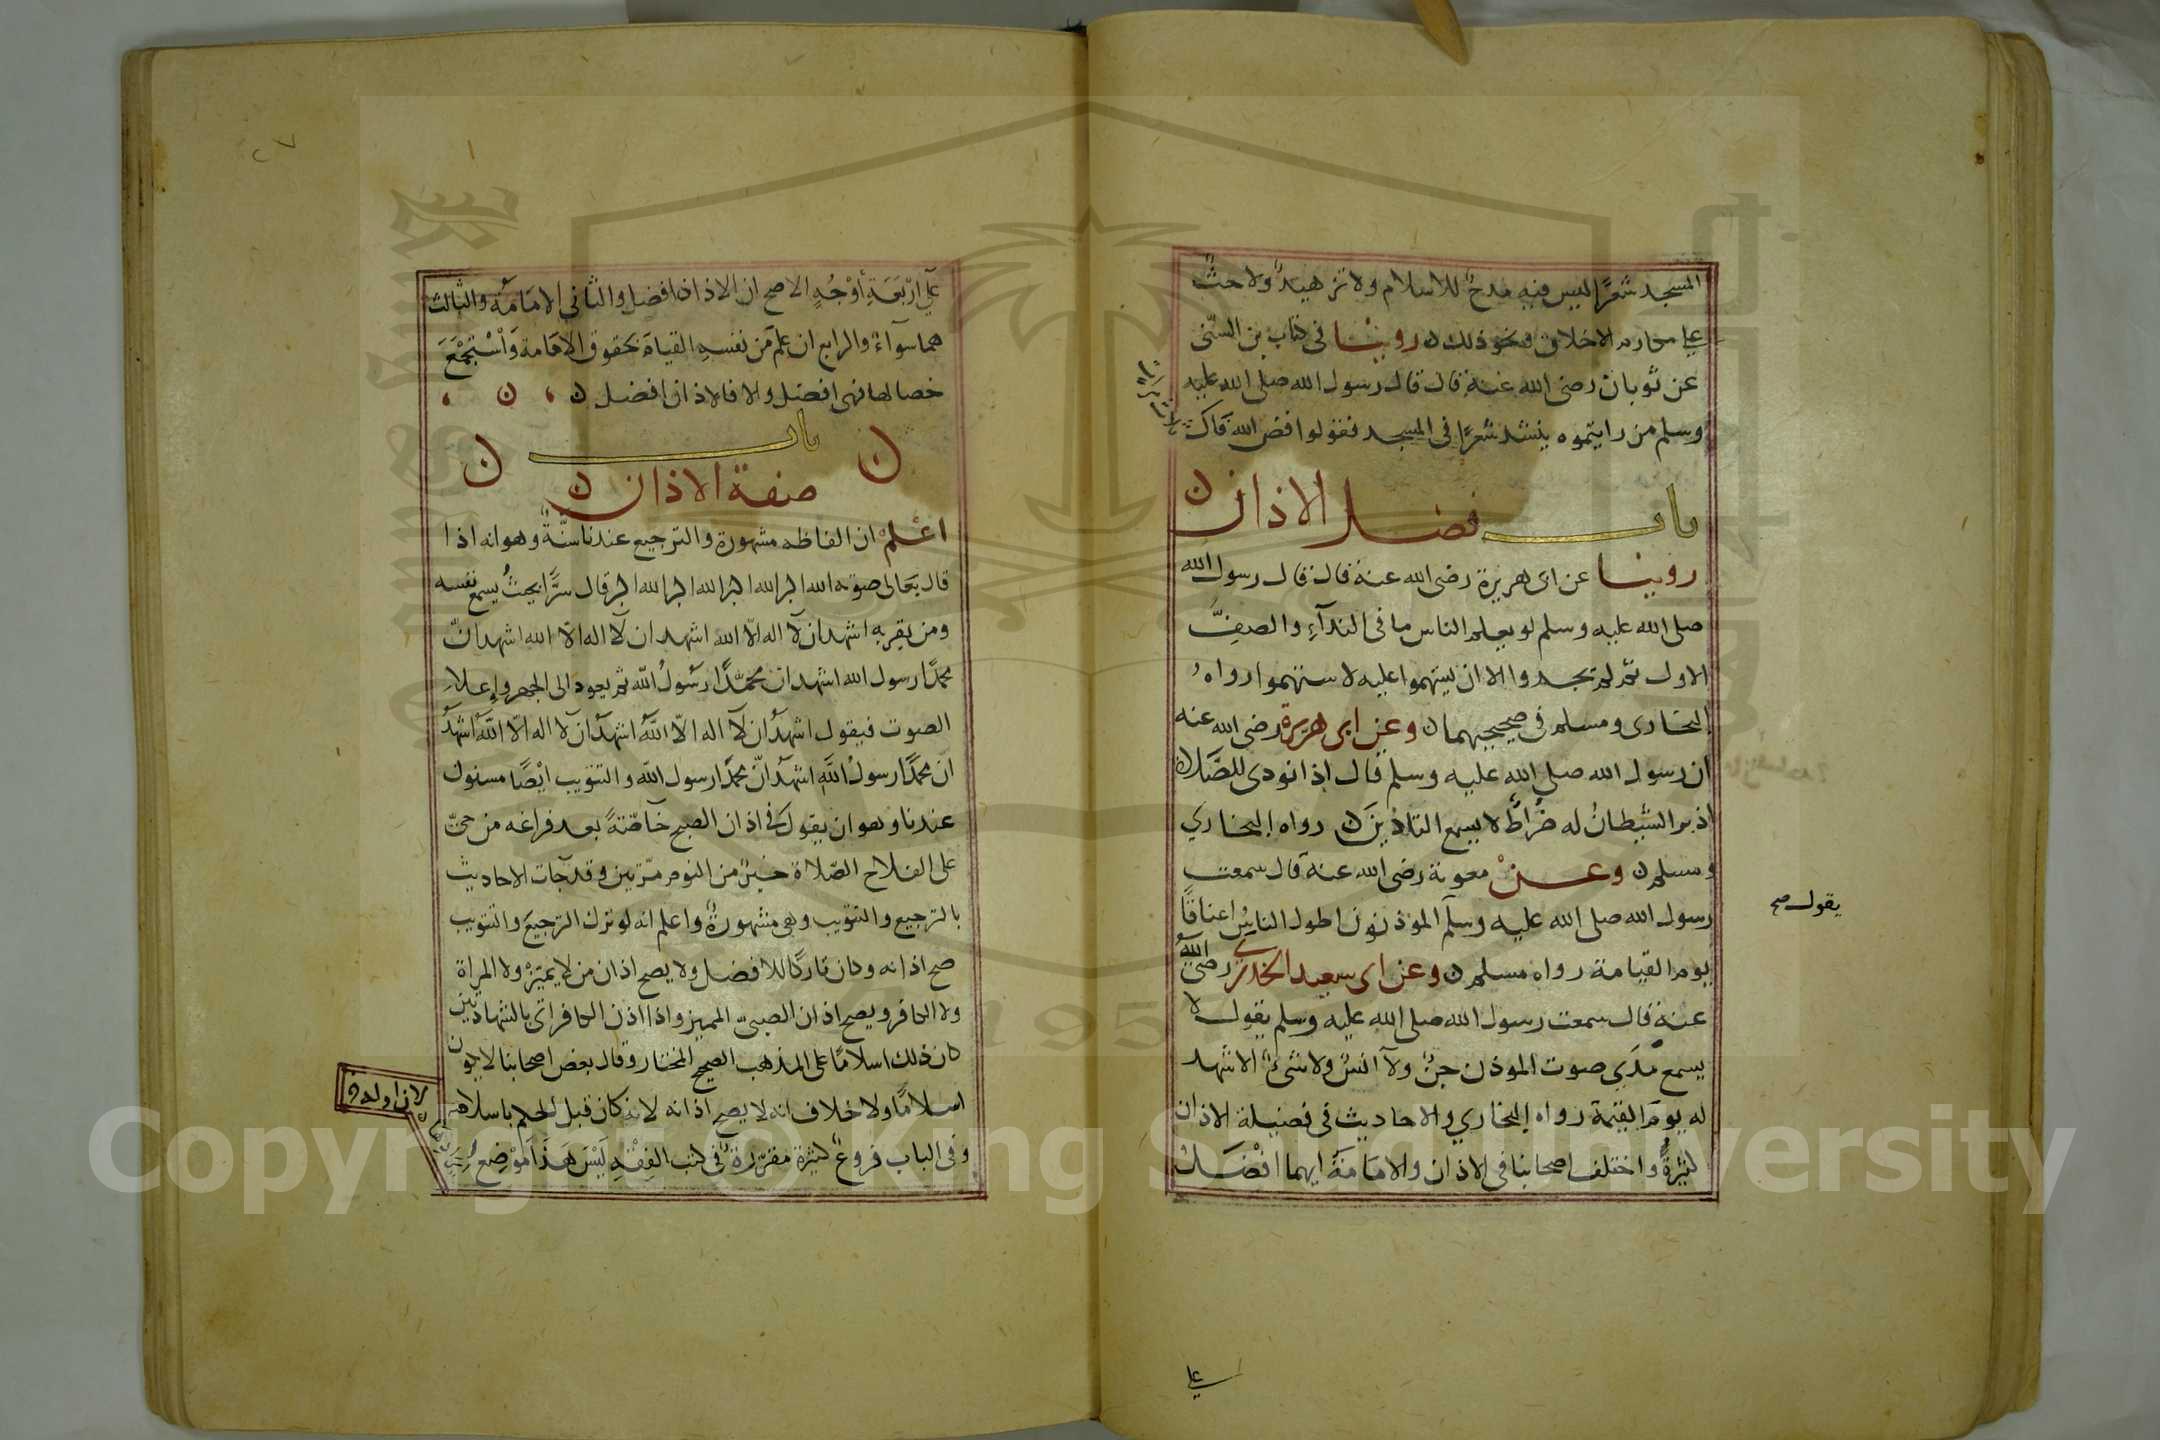 المسجد شعرًا ليس فيه مدحٌ للاسلام ولا تزهيدٌ ولا حثٌ
على مكارم الاخلاق ونحو ذلك ن روينا في كتاب بن السنّي
عن ثوبان رضى الله عنه قال قال رسول الله صلى الله عليه
وسلم من رايتموه ينشد شعرًا في المسجد فقولوا فض الله فاك
ثلاث مرات
باب فضل الاذان ن
روينا عن ابى هريرة رضى الله عنه قال قال رسول الله
صلى الله عليه وسلم لو يعلم الناس ما فى الندآءِ والصفِّ
الاول ثم لم يجدوا الا ان يستهموا عليه لاستهموا رواهُ
البخارى ومسلم في صحيحيهما ن وعن ابى هريرة رضى الله عنه
ان رسول الله صلى الله عليه وسلم قال اذا نودى للصَّلاة
ادبر الشيطانُ له ضُراطٌ لا يسمع التاذين ن رواه البخاري
ومسلم ن وعنْ معوية رضى الله عنه قال سمعت
رسول الله صلى الله عليه وسلم الموذنون اطول الناسِ اعناقًا
يقول صح
يوم القيامة رواه مسلم ن وعن ابى سعيد الخدري رضى الله
عنه قال سمعت رسول الله صلى الله عليه وسلم يقول لا
يسمع مَدَى صوت الموذن جنٌ ولا انسٌ ولا شىءٌ الا شهد
له يوم القيمة رواه البخاري والاحاديث فى فضيلة الاذان
كثيرةٌ واختلف اصحابنا فى الاذان والامامَة ايهما افْضَل
على
٢٧
على اربَعَةِ أوْجُهٍ الاصح ان الاذان افضل والثانى الامامَة والثالث
هما سوآءٌ والرابع ان علم من نفسهِ القيام بحقوق الامامة وَاسْتجمَعَ
خصالها فهى افضل والا فالاذان افضل ن ، ن ،
ن باب ن
صفة الاذان ن
اعْلمْ ان الفاظه مشهورة والترجيع عندنا سنَّةٌ وهو انه اذا
قال بعالى صوته الله اكبر الله اكبر الله اكبر الله اكبر قال سرًّا بحيثُ يسمع نفسه
ومن بقربه اشهد ان لآ اله الّا الله اشهد ان لآ اله الّا الله اشهد انّ
محمدًا رسول الله اشهد ان محمّدًا رسُولُ الله ثم يعود الى الجهر وإعلاءِ
الصوت فيقول اشهدُ ان لآ اله الّا اللهُ اشهدُ ان لآ اله الّا اللهُ اشهدُ
انّ محمدًا رسولُ الله اشهدُ انّ محمدًا رسول الله والتثويب ايْضًا مسنون
عندنا وهو ان يقول فى اذان الصبح خاصّةً بعد فراغه من حىّ
على الفلاح الصّلاة خيرٌ من النوم مرّتين وقد جآت الاحاديث
بالترجيع والتثويب وهى مشهورةٌ واعلم انه لو ترك الترجيعَ والتثويب
صح اذانه وكان تاركًا للافضل ولا يصح اذان من لا يميّزُ ولا المراة
ولا الكافر ويصح اذان الصبىّ المميز واذا اذن الكافر اتى بالشهادتين
كان ذلك اسلامًا على المذهب الصحيح المختار وقال بعض اصحابنا لا يكون
اسلامًا ولا خلاف انه لا يصح اذانه لانه كان قبل الحكم باسلامه
لان اوله
وفى الباب فروعٌ كثيرة مقرّرةٌ فى كتب الفقْهِ لَيْسَ هَذَا مَوْضِعُ
Copyright © King Saud University
195